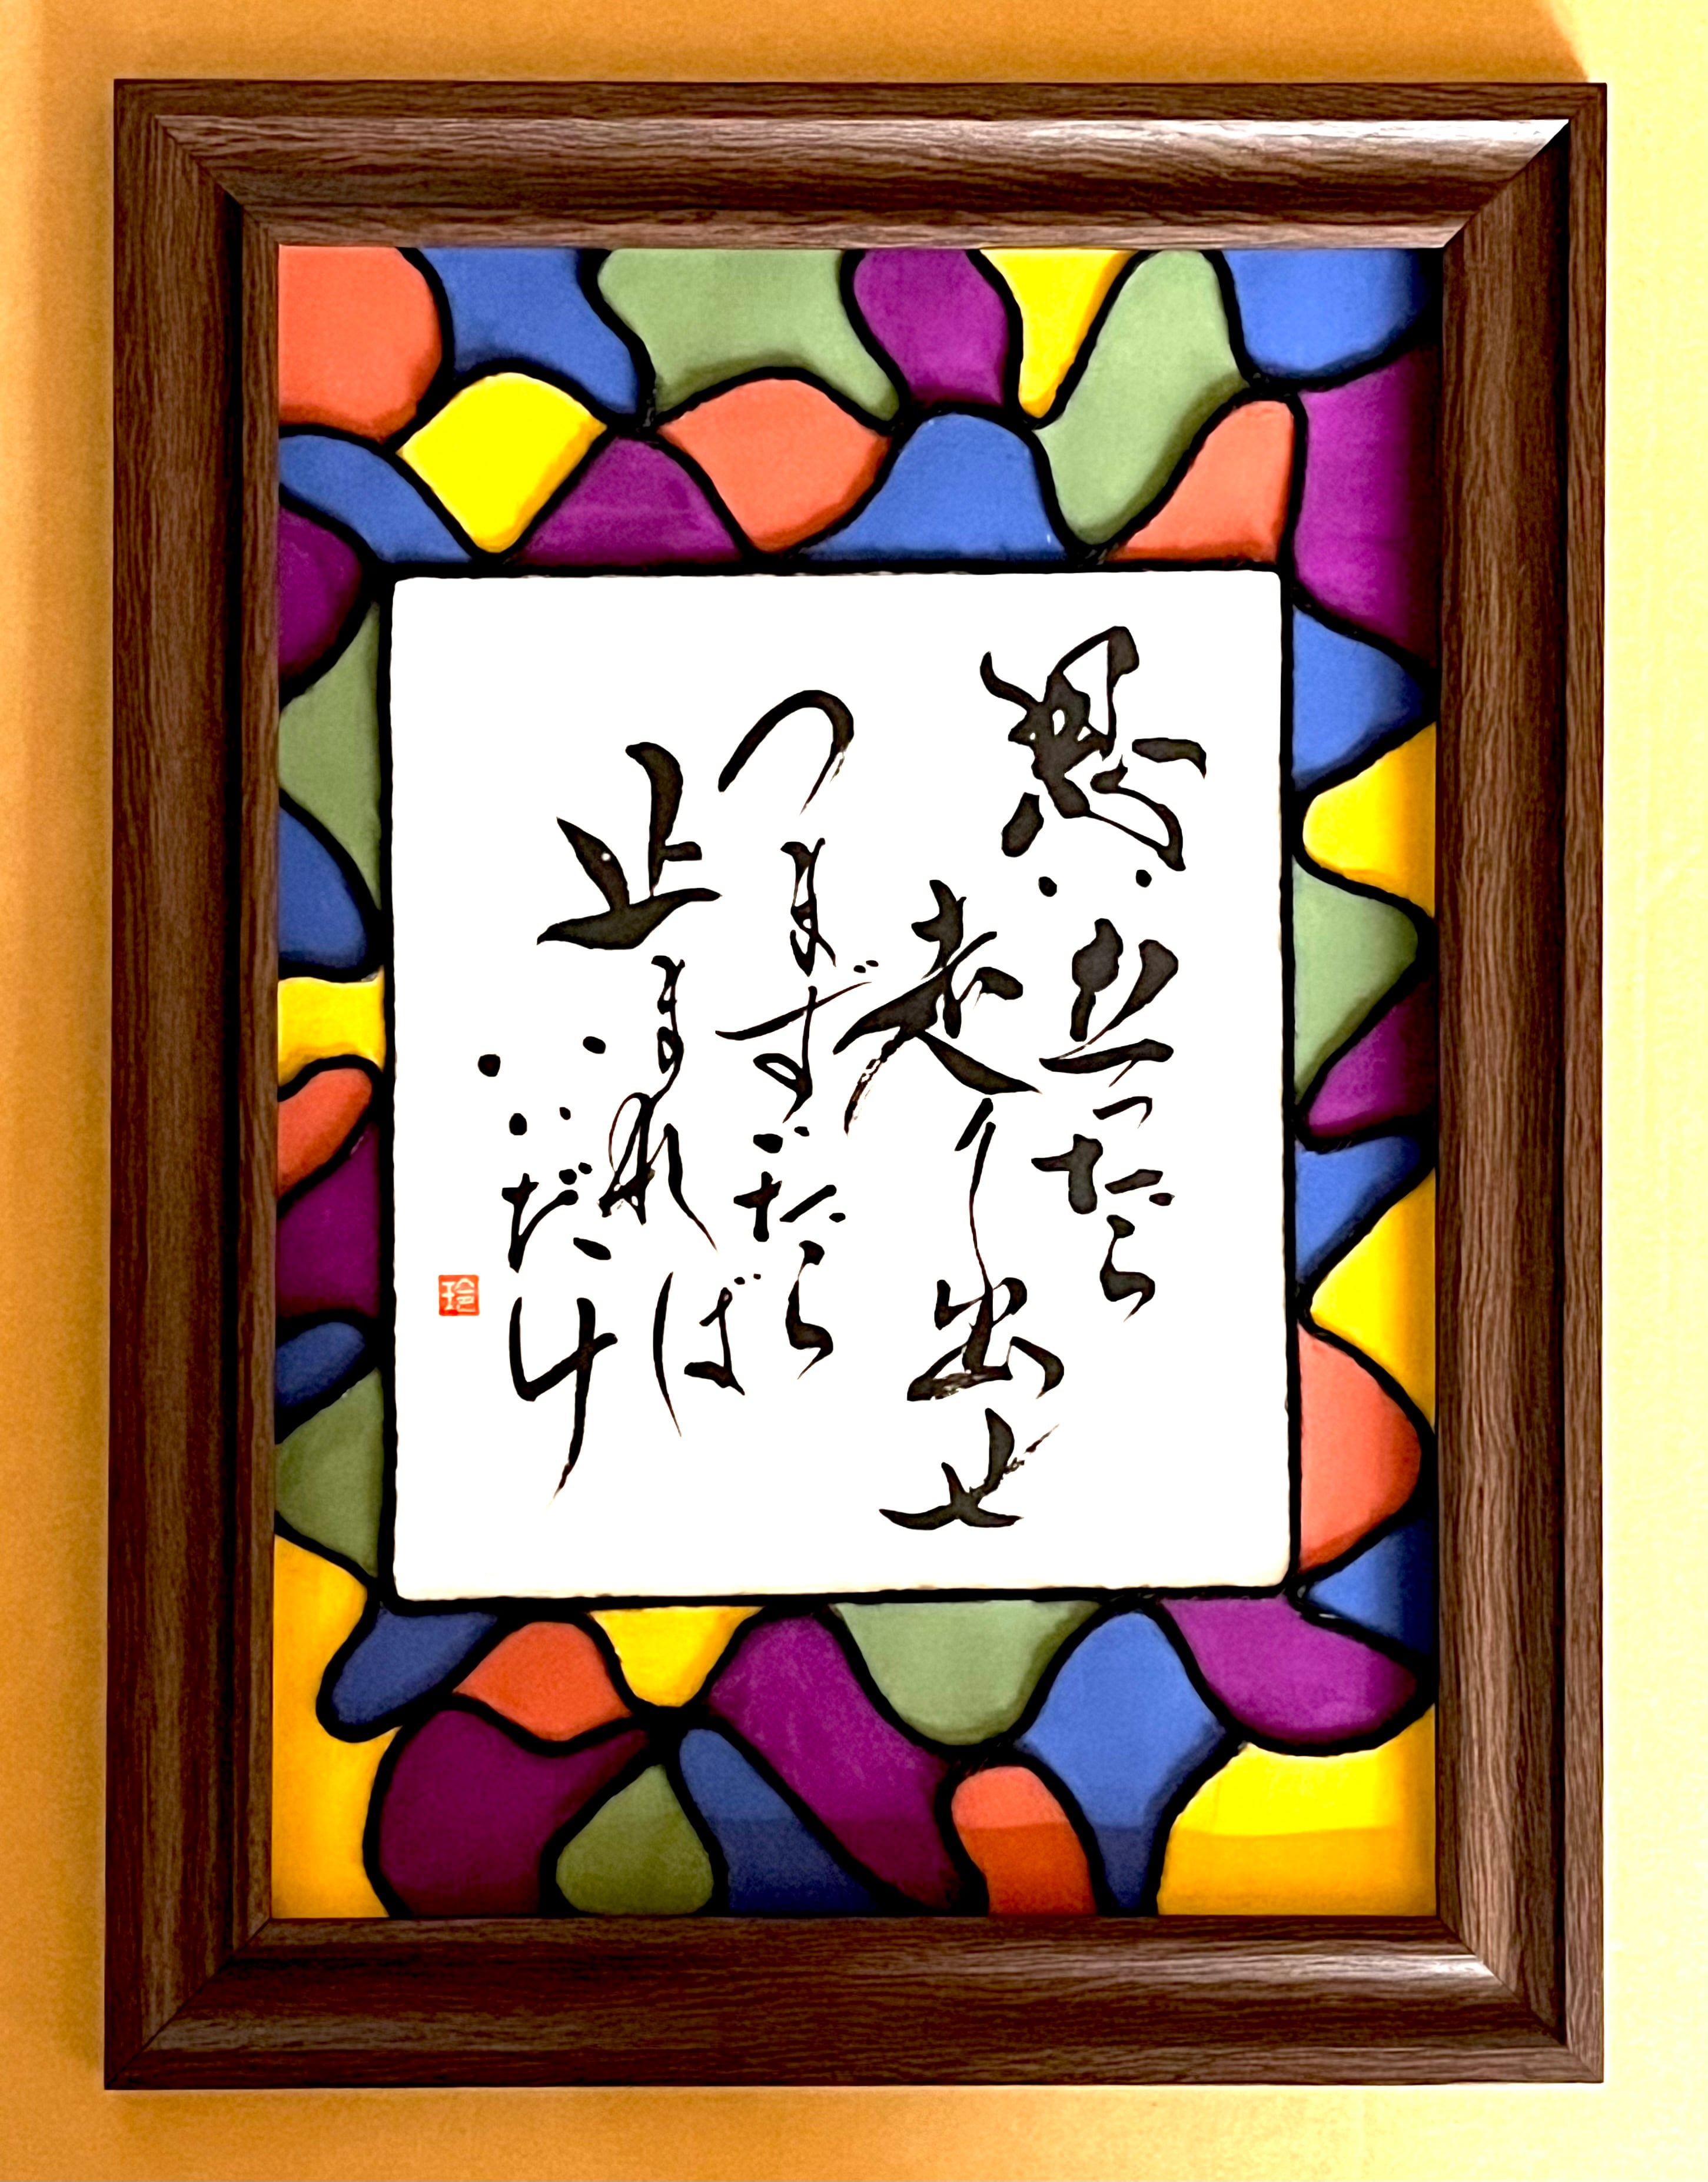 思い立ったら
走り出せ
つまずいたら
止まれば
いいだけ
玲